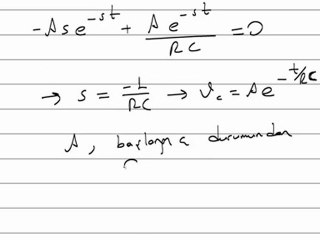 -Ase^{-st} + \frac{Ae^{-st}}{RC} = 0
→ s = \frac{-1}{RC} → v_c = Ae^{-t/RC}
A, başlangıç durumundan